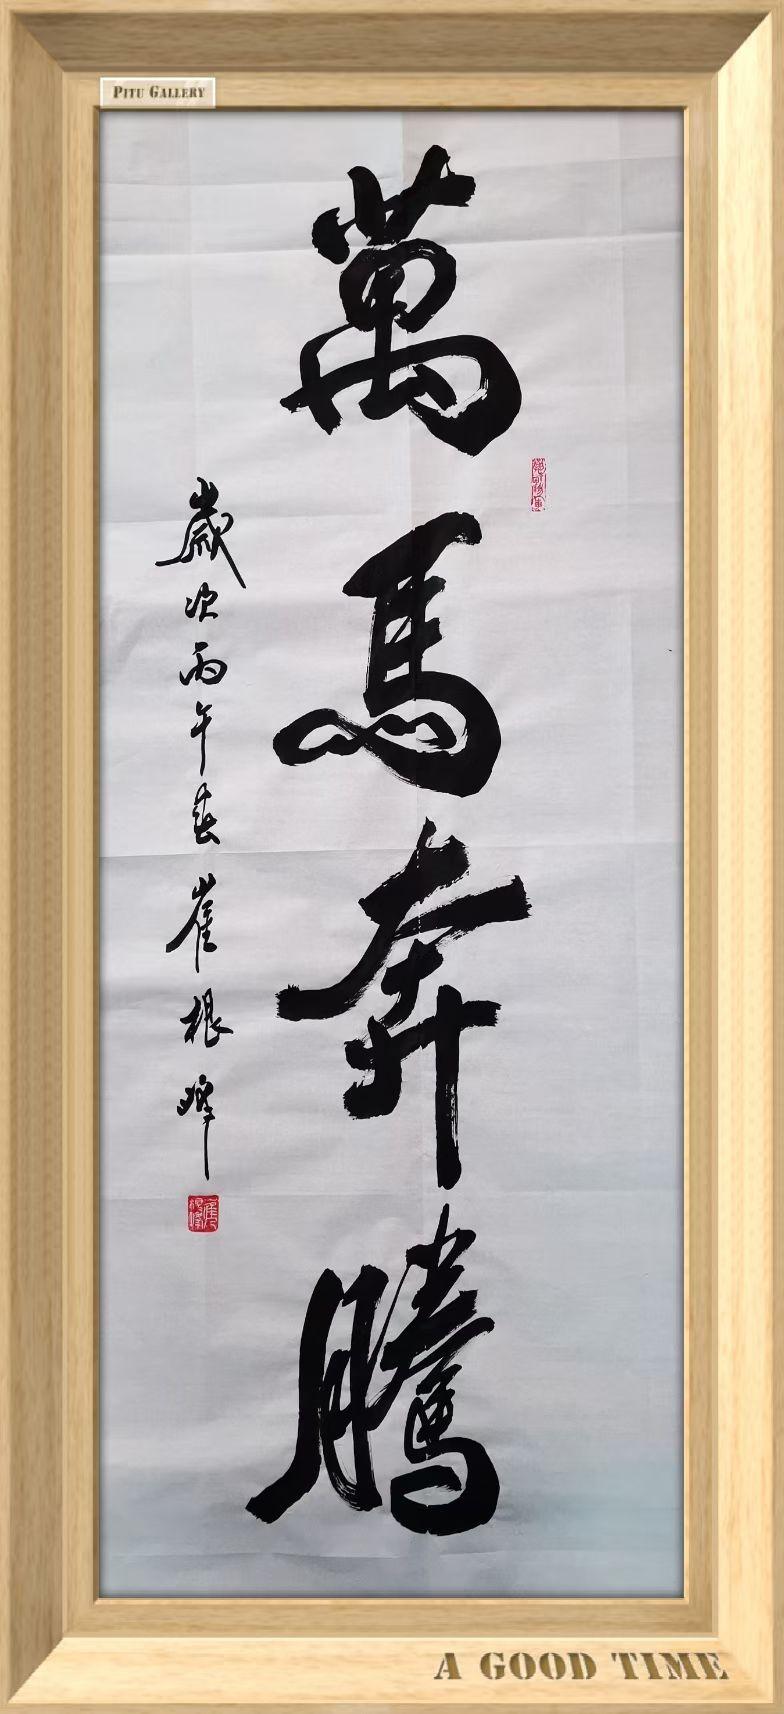 PITU GALLERY
萬馬奔騰
歲次丙午春崔根峰
崔根峰
A GOOD TIME